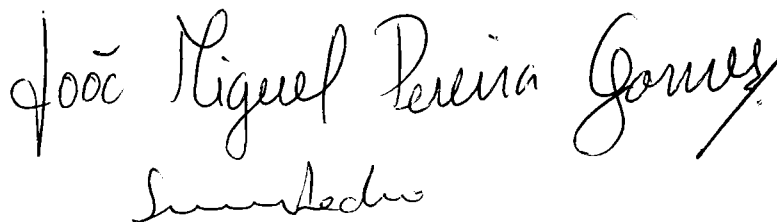 João Miguel Pereira Gomes